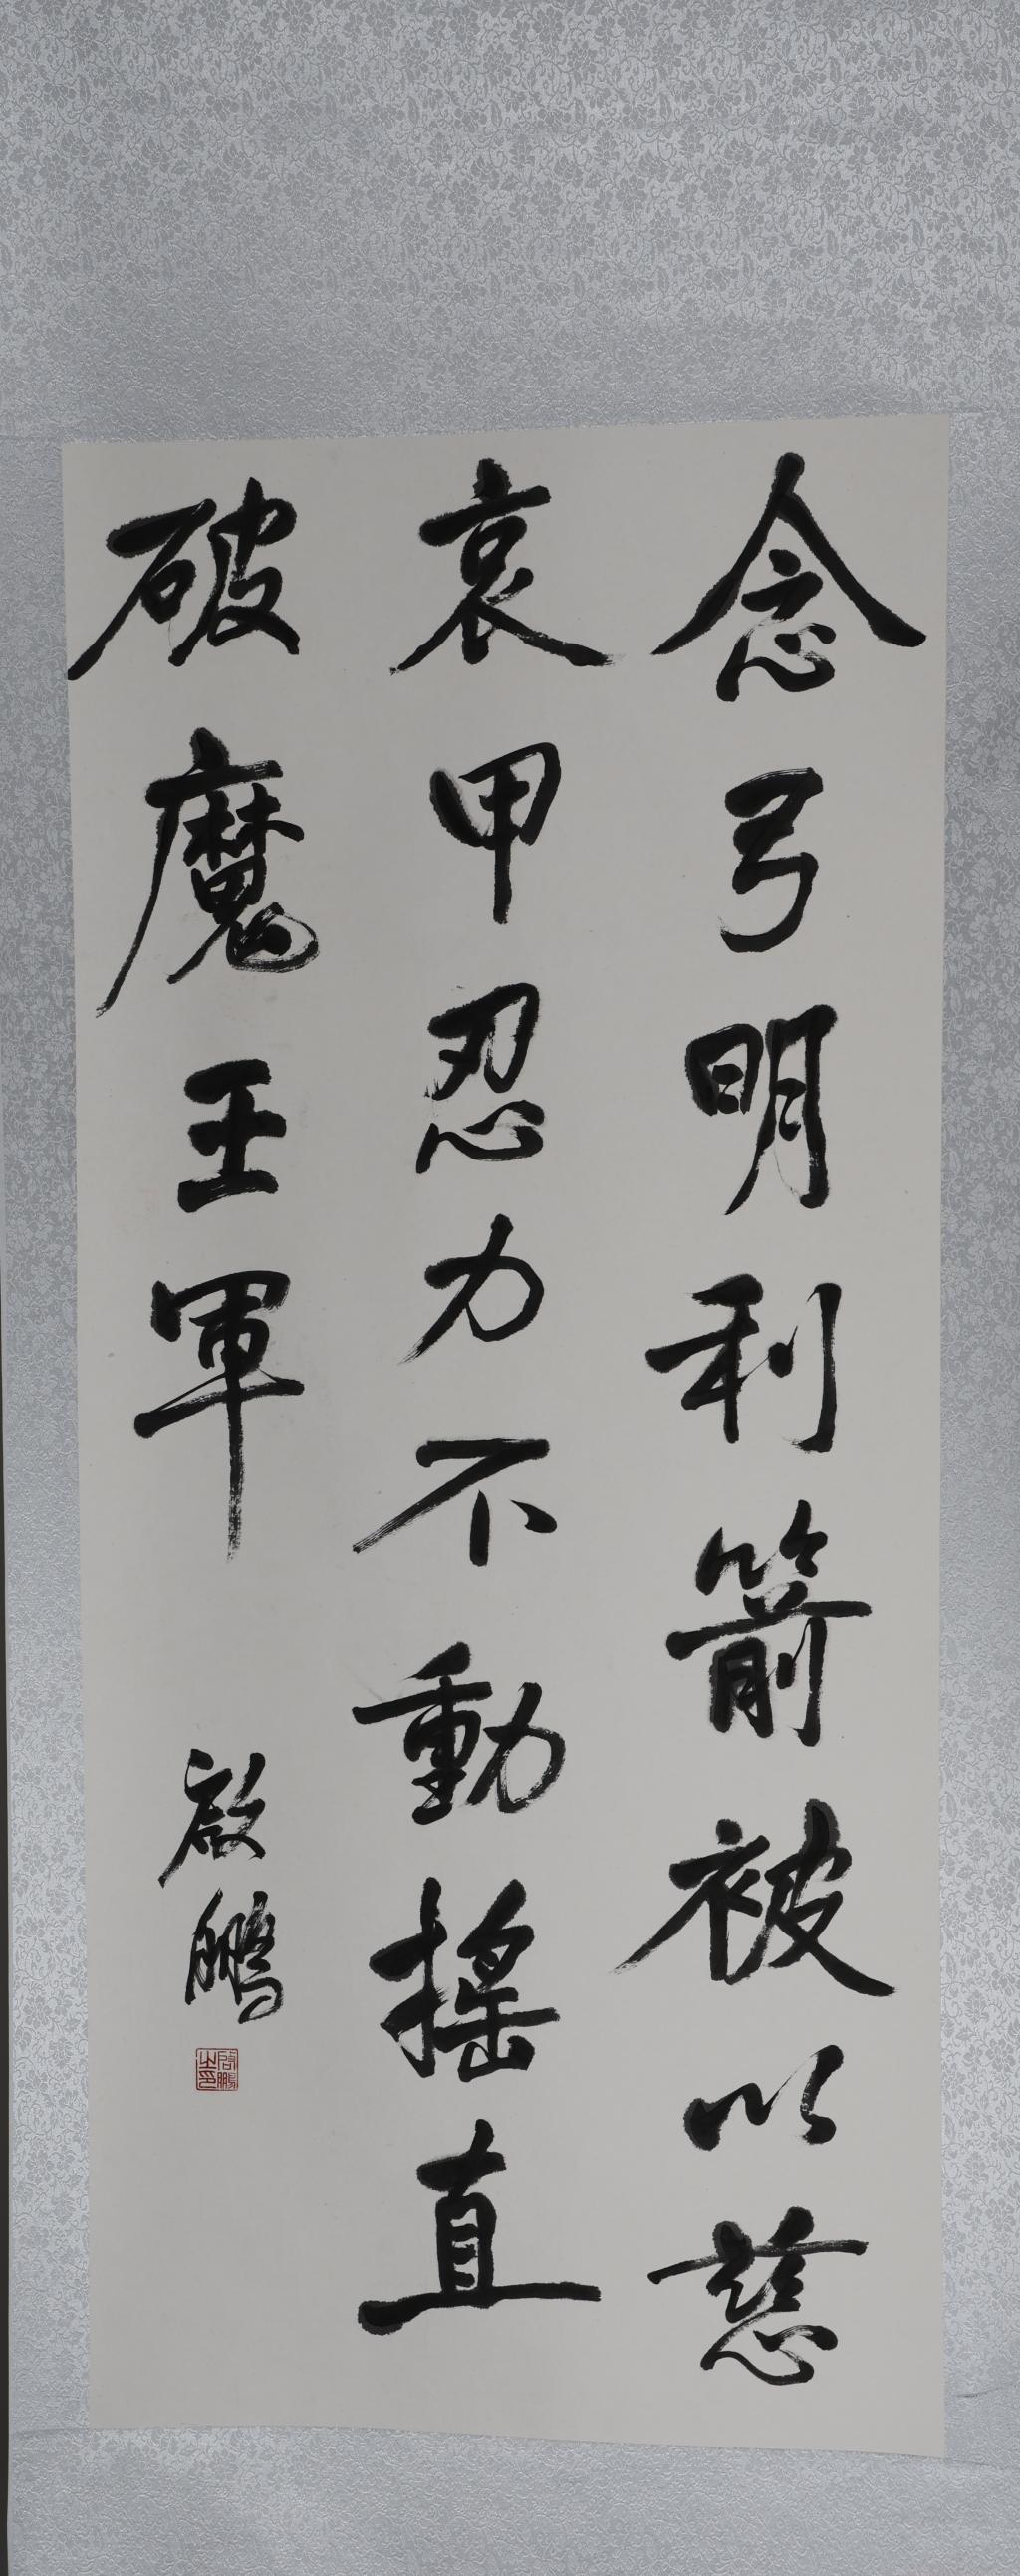 念弓明利箭被以慈
哀甲忍力不動搖直
破魔王軍
啟鵬
啟鵬之印